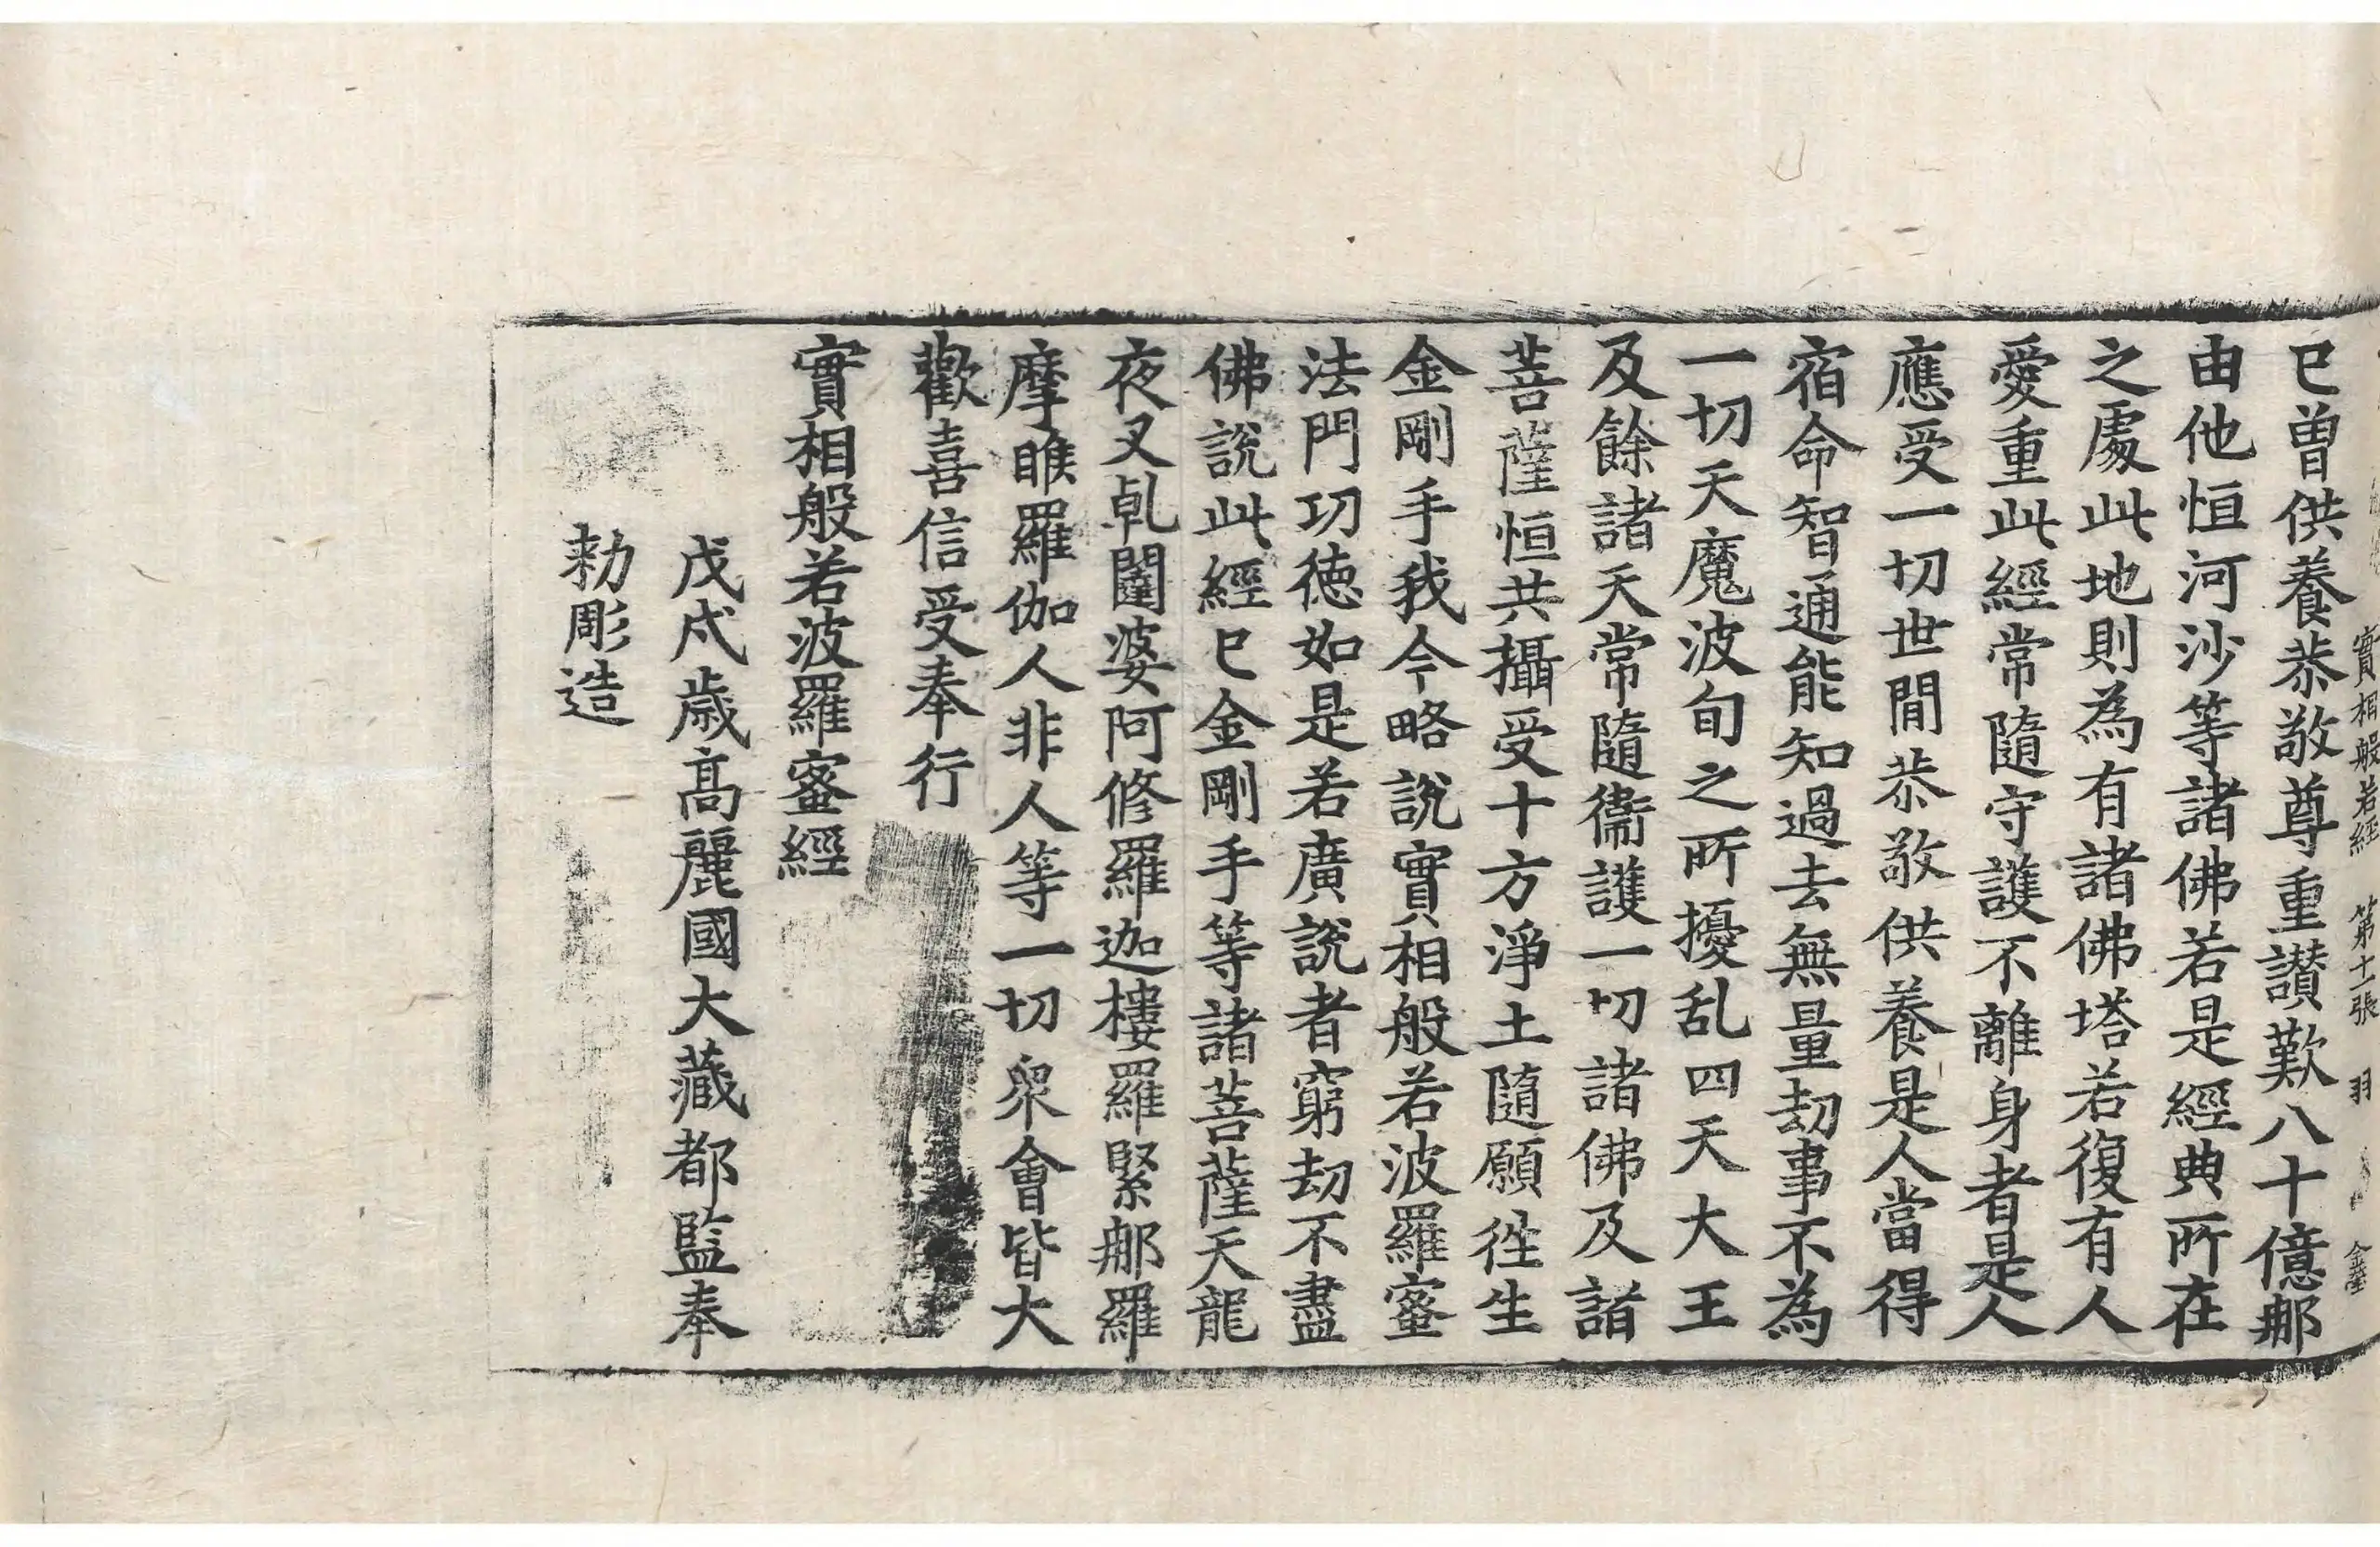 實相般若經 第十一張 羽 金璧
已曾供養恭敬尊重讃歎八十億𨙻
由他恒河沙等諸佛若是經典所在
之處此地則為有諸佛塔若復有人
愛重此經常隨守護不離身者是人
應受一切世閒恭敬供養是人當得
宿命智通能知過去無量劫事不為
一切天魔波旬之所擾乱四天大王
及餘諸天常隨衞護一切諸佛及諸
菩薩恒共攝受十方淨土隨願徃生
金剛手我今略說實相般若波羅蜜
法門功德如是若廣說者窮劫不盡
佛說此經已金剛手等諸菩薩天龍
夜叉乹闥婆阿修羅迦樓羅緊𨙻羅
摩睺羅伽人非人等一切衆會皆大
歡喜信受奉行
實相般若波羅蜜經
戊戌歲高麗國大藏都監奉
勑彫造